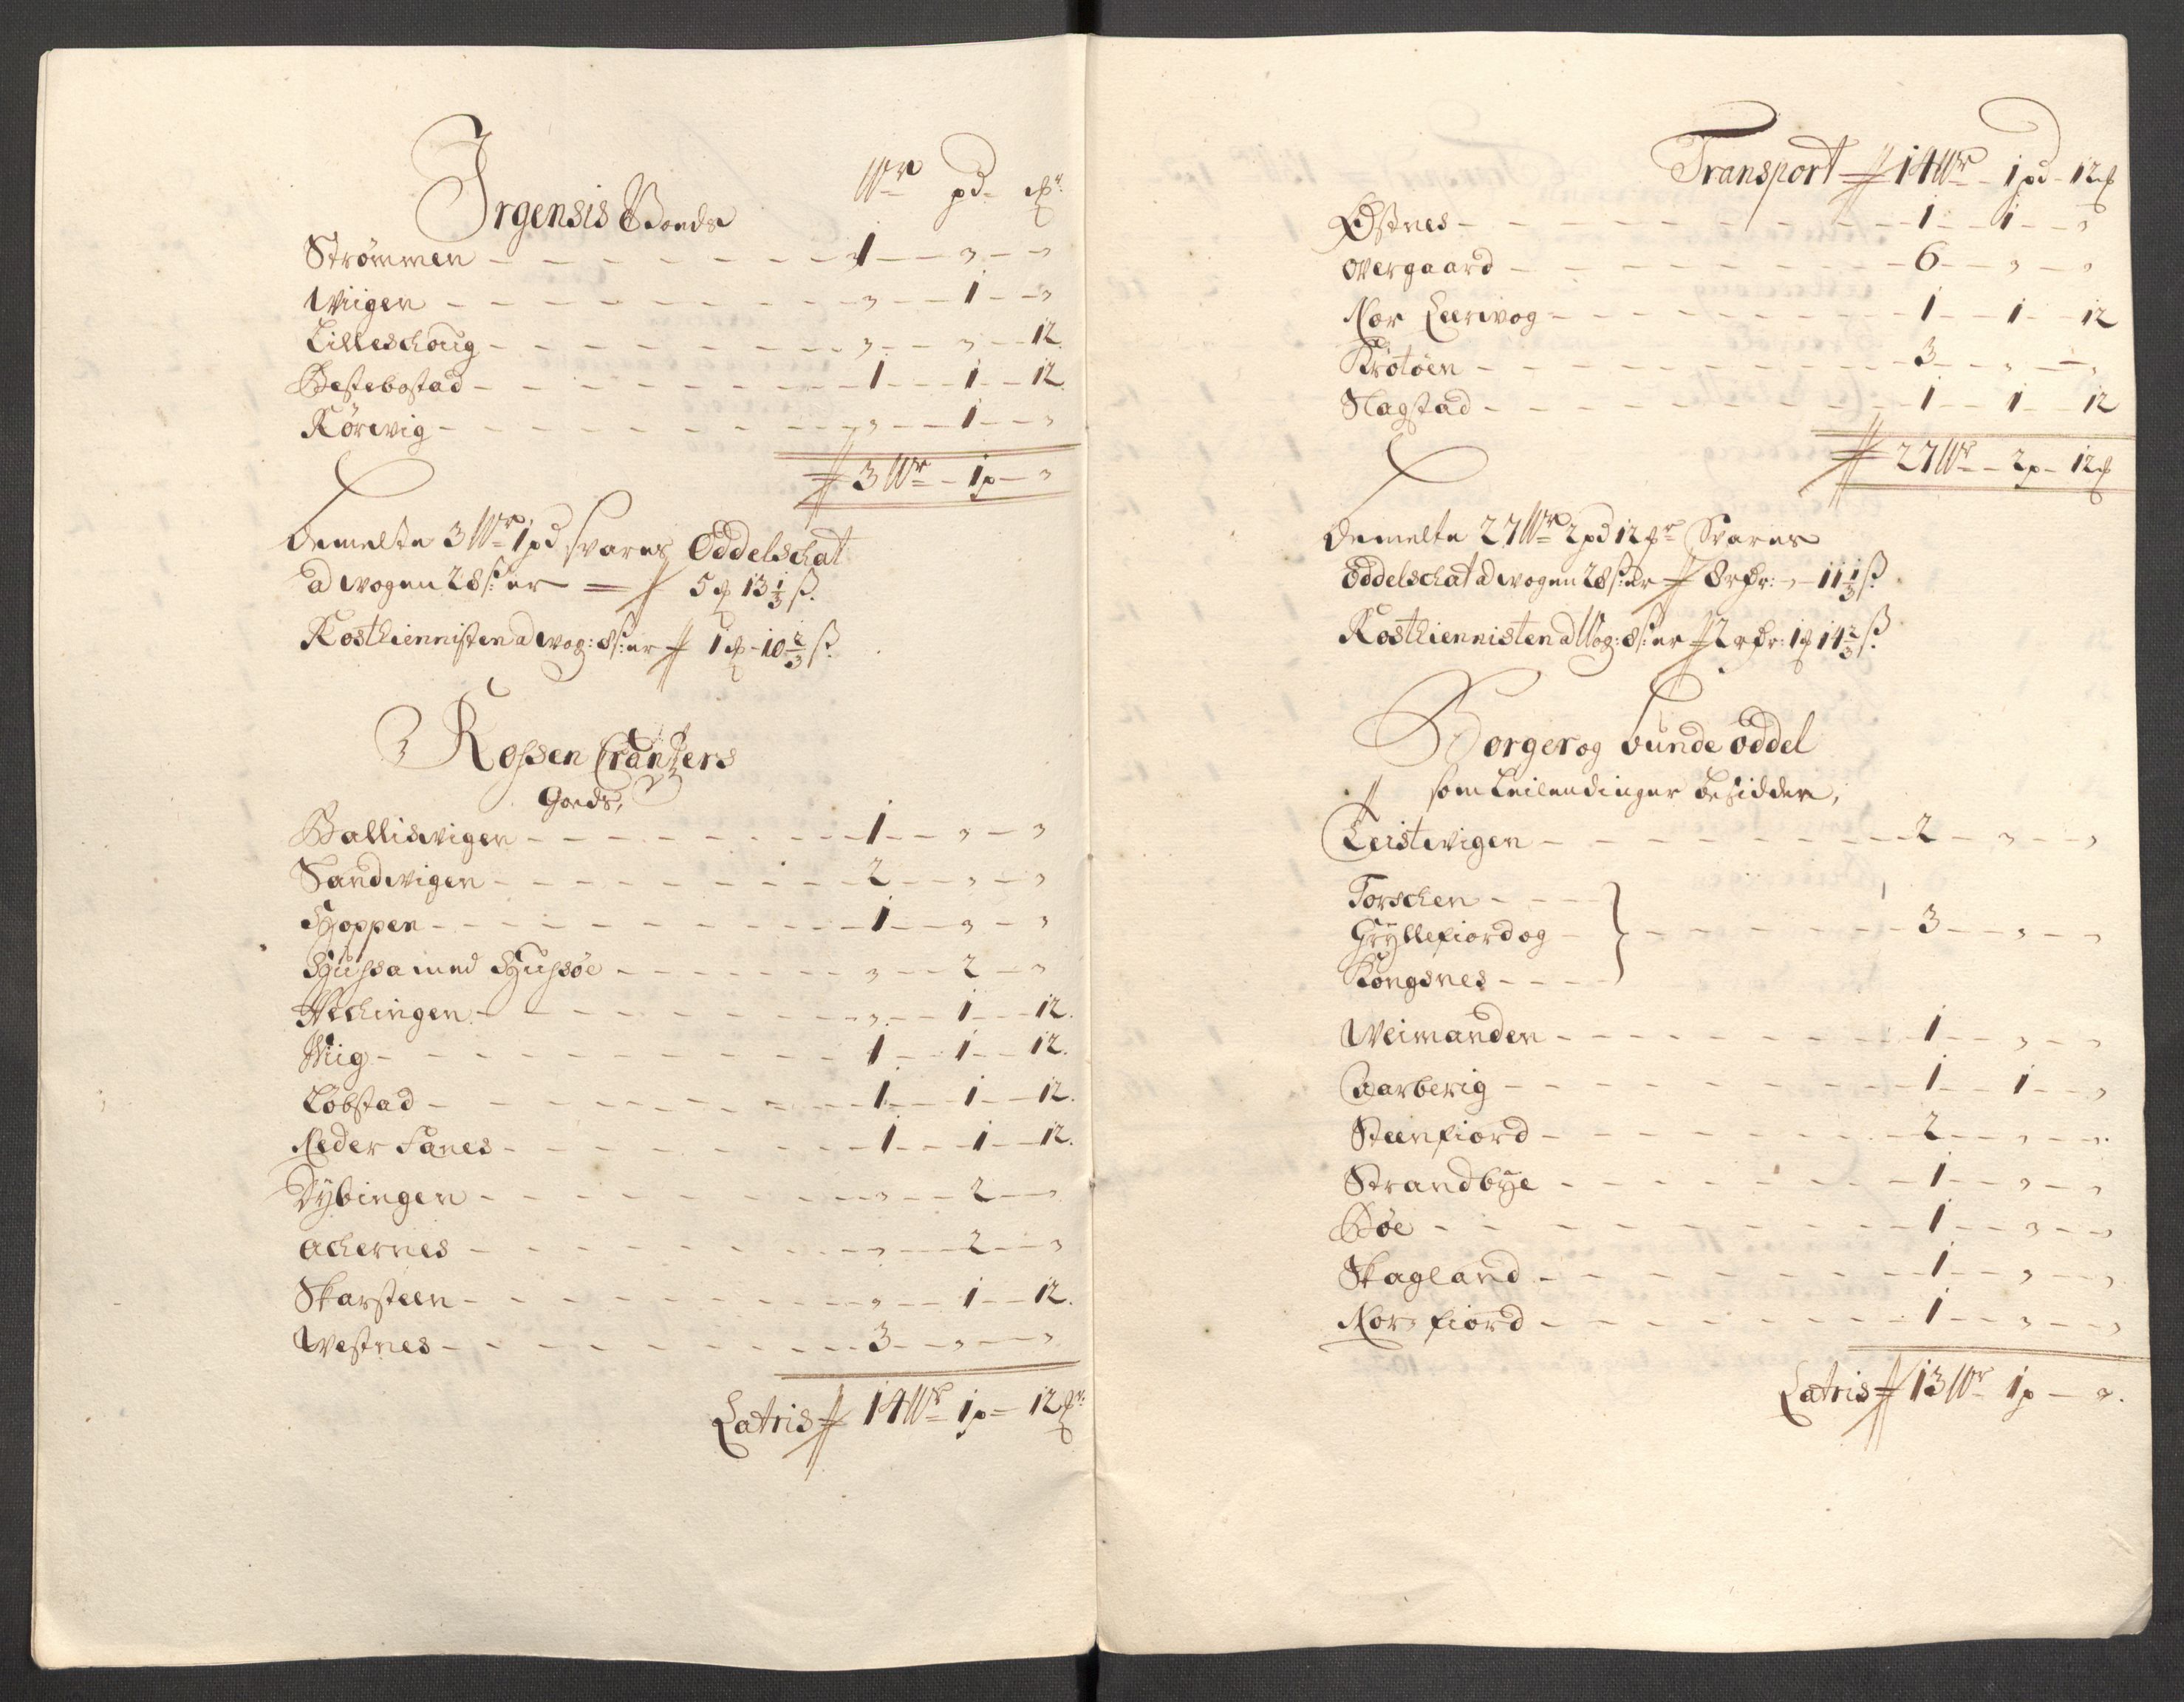 Irgensis Goeds
Wr pd ℔r
Strømmen - 1 - " - "
Wiigen - " - 1 - "
Lilleschoug - " - " - 12.
Bestebostad - 1 - 1 - 12.
Kørewig - " - 1 - "
3 Wr - 1 p - "
Bemelte 3 Wr 1 pd svares Oddelschat
ad wogen 28 s: er = 5 ℔ 13 1/3 ß.
Kosthiennisten ad wog: 8 s: er 1 ℔ - 10 2/3 ß.
Rossen Crantzers
Goeds,
Balliswigen - 1 - " - "
Sandwigen - 2 - " - "
Hoppen - 1 - " - "
Hussa med Hussøe - " - 2 - "
Hechingen - " - 1 - 12.
Wiig - 1 - 1 - 12.
Løbstad - 1 - 1 - 12.
Neder Fanes - 1 - 1 - 12.
Dybingen - " - 2 - "
Achernes - " - 2 - "
Skarsteen - " - 1 - 12.
Westnes - 3 - " - "
Latris 14 Wr 1 p - 12 ℔r
Transport 14 Wr - 1 pd - 12 ℔
Østnes - 1 - 1 - "
Overgaard - 6 - " - "
Nor Leerwog - 1 - 1 - 12
Krøtøen - 3 - " - "
Slagstad - 1 - 1 - 12
27 Wr - 2 p - 12 ℔
Bemelte 27 Wr 2 pd 12 ℔r Svares
Oddelschat ad wogen 28 s: er 8 rdr: " - 11 1/3 ß.
Kosthiennisten ad Wog: 8 s: er 2 rdr: 1 ℔ 14 2/3 ß.
Borger og bunde oddel
som Leilendinger besidder,
Teistevigen - 2 - " - "
Torschen
Gryllefiord og - 3 - " - "
Kongsnes
Weimanden - 1 - " - "
Aarberig - 1 - 1 - "
Steenfiord - 2 - " - "
Strandbye - 1 - " - "
Bøe - 1 - " - "
Skagland - 1 - " - "
Nor fiord - 1 - " - "
Latris 13 Wr 1 p - ".